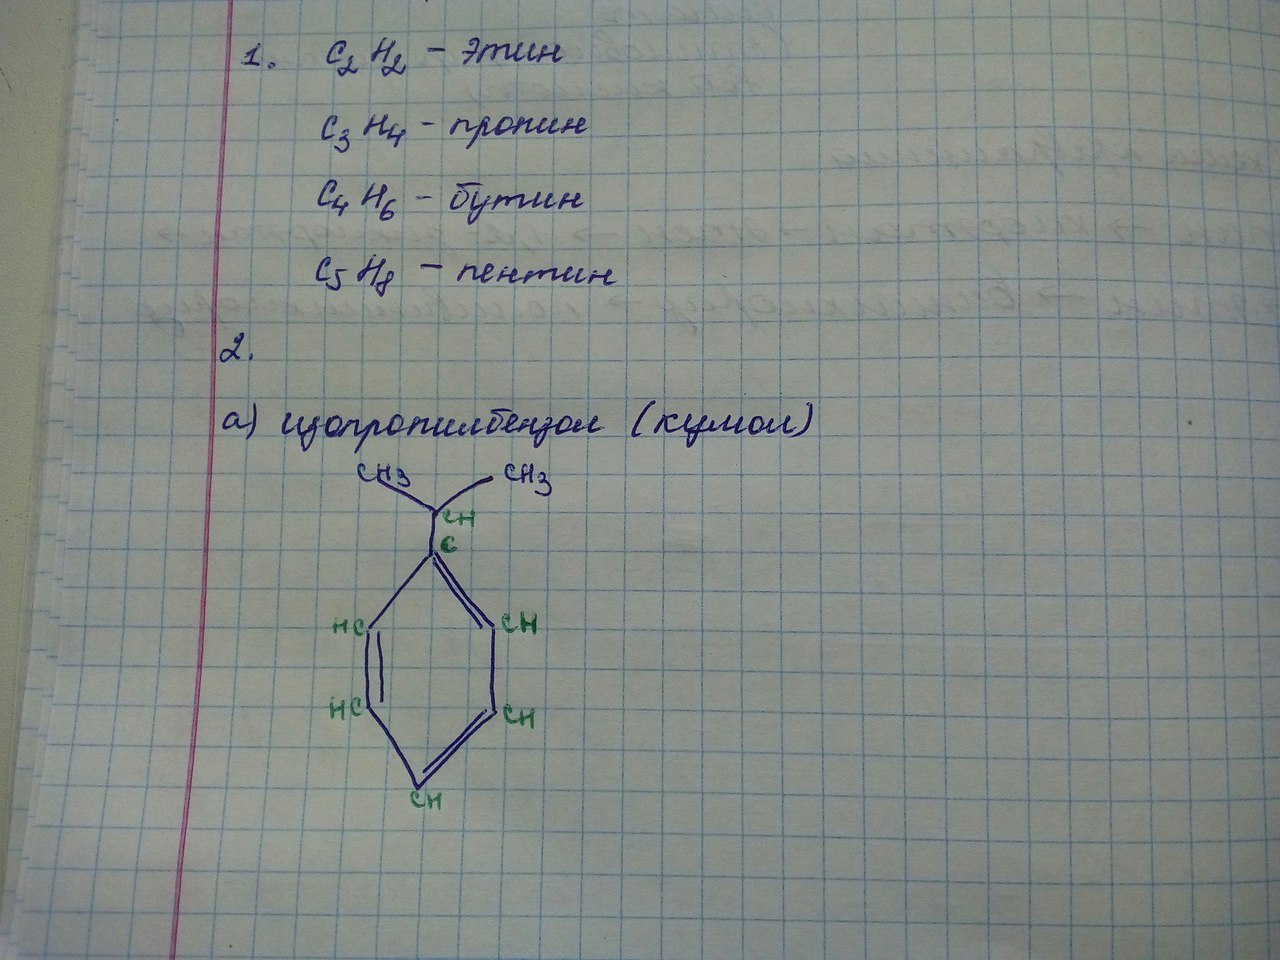 1. C₂H₂ – этин
C₃H₄ – пропин
C₄H₆ – бутин
C₅H₈ – пентин
2.
а) изопропилбензол (кумол)
CH₃ CH₃
CH
C
HC CH
HC CH
CH